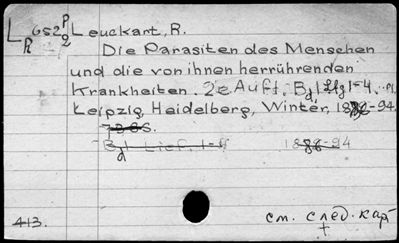 L R 652 P 2 Leuckart, R.
Die Parasiten des Menschen
und die von ihnen herrührenden
Krankheiten. 2e Aufl. Bd 1 Lfg 1-4.
Leipzig, Heidelberg, Winter, 18 -94.
S.
Bd 1 Lief. 1- 1888-94
413. см. след. карт